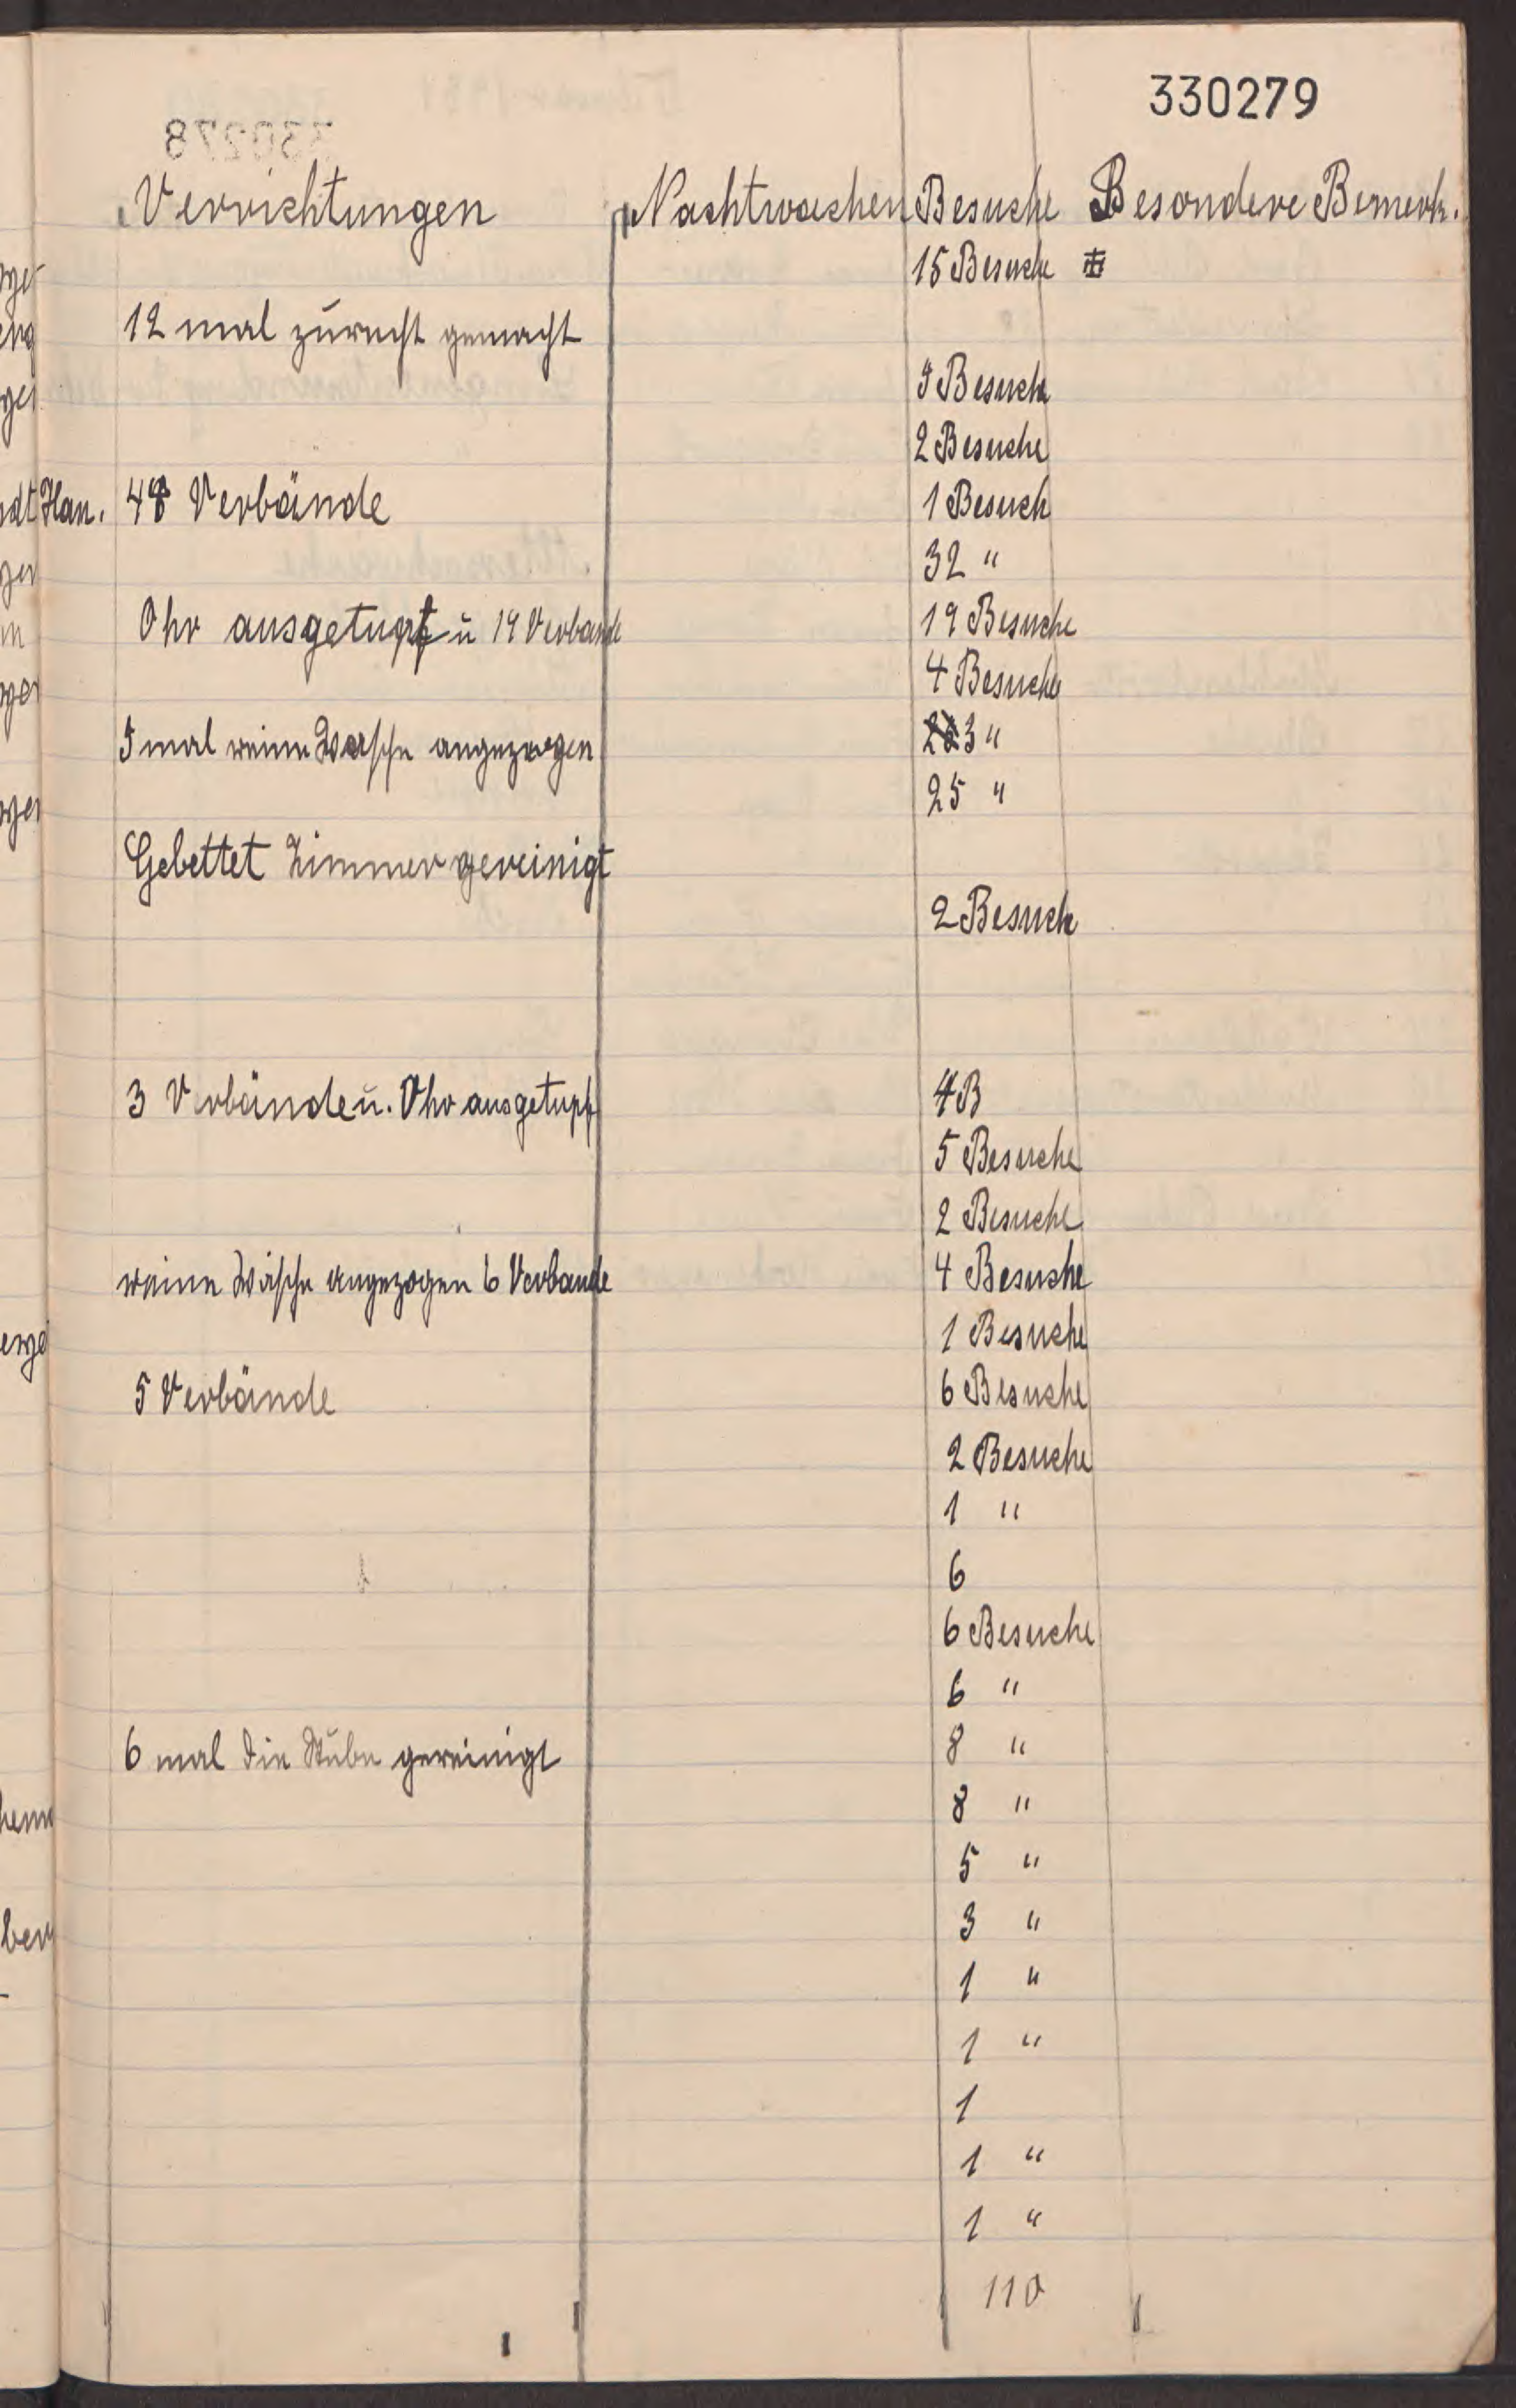 330279
Verrichtungen Nachtwachen Besuche Besondere Bemerk.
15 Besuche
12 mal zurecht gemacht
5 Besuch
2 Besuche
Han. 48 Verbände 1 Besuch
32 "
Ohr ausgetupft u 19 Verbande 19 Besuche
4 Besuche
5 mal reine Wäsche angezogen 3 "
25 "
Gebettet Zimmer gereinigt
2 Besuch
3 Verbände u. Ohr ausgetupf 4 B
5 Besuche
2 Besuche
reine Wäsche angezogen 6 Verbande 4 Besuche
1 Besuche
5 Verbände 6 Besuche
2 Besuche
1 "
6
6 Besuche
6 "
6 mal die Stube gereinigt 8 "
8 "
5 "
3 "
1 "
1 "
1
1 "
1 "
110